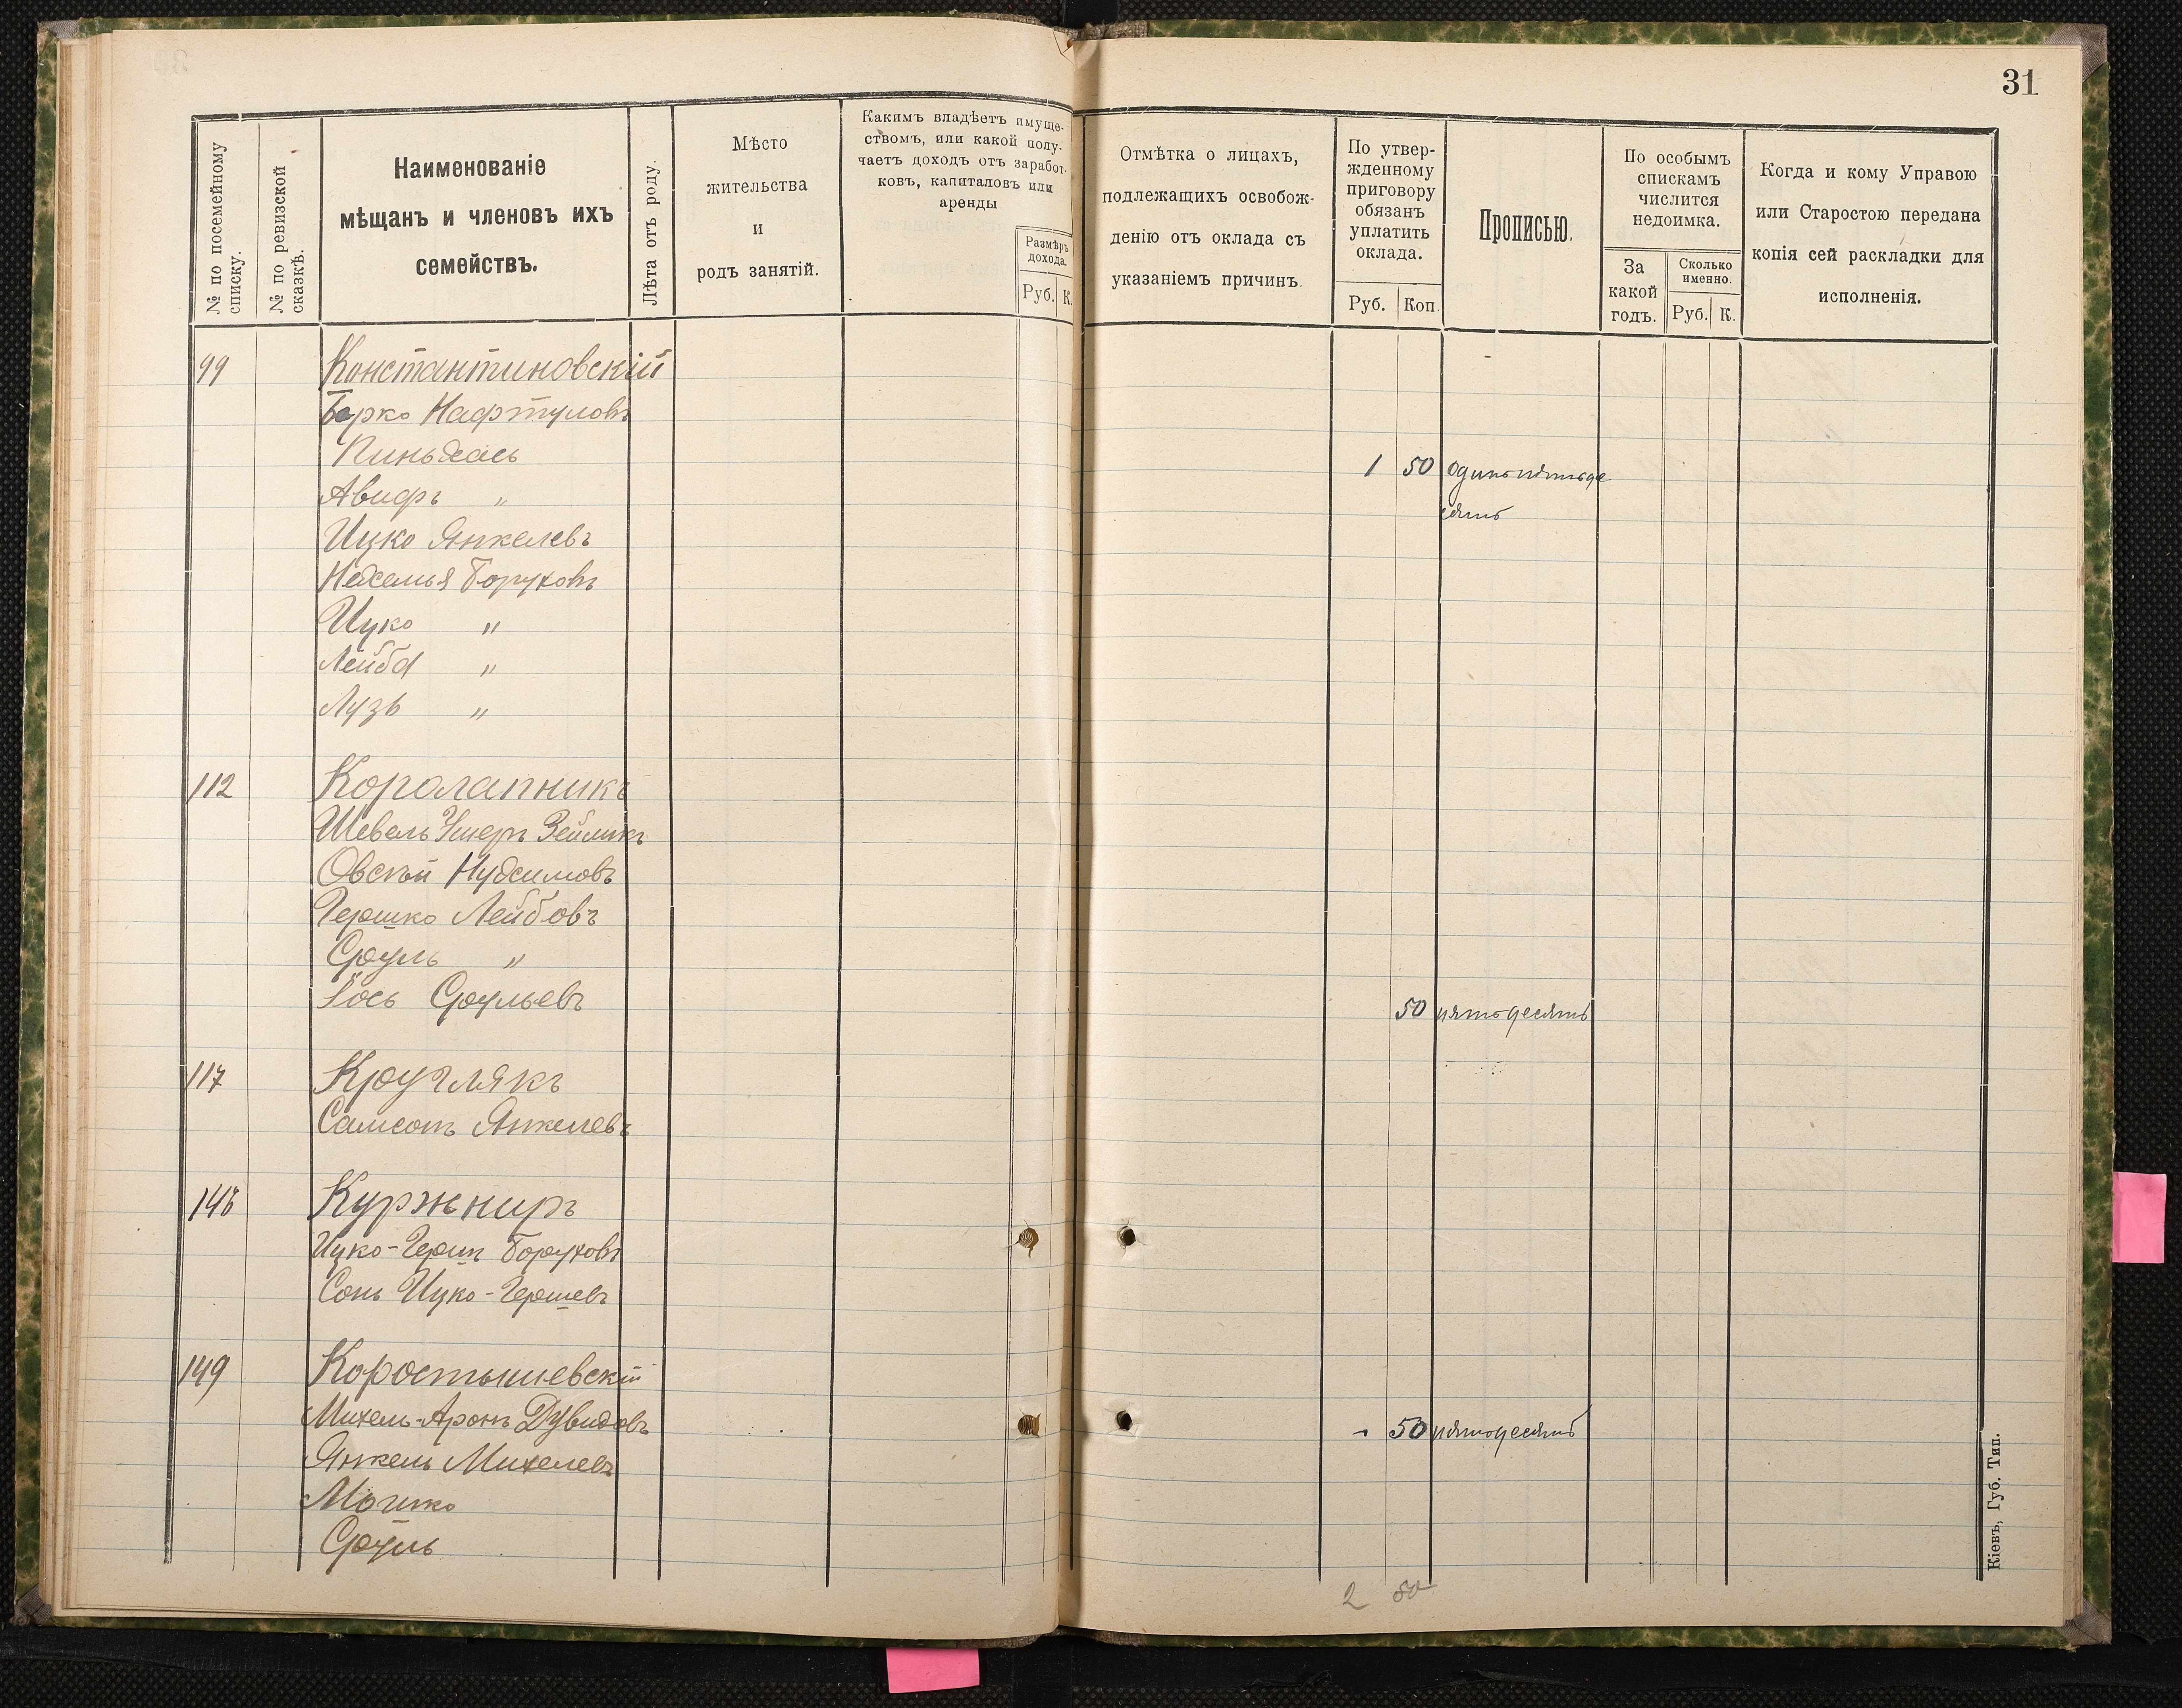 31
№ по посемейному списку.
№ по ревизской сказкѣ.
Наименованіе
мѣщанъ и членовъ ихъ
семействъ.
Лѣта отъ роду.
Мѣсто
жительства
и
родъ занятій.
Какимъ владѣетъ имуще-
ствомъ, или какой полу-
чаетъ доходъ отъ заработ-
ковъ, капиталовъ или
аренды
Размѣръ
дохода.
Руб. К.
Отмѣтка о лицахъ,
подлежащихъ освобож-
денію отъ оклада съ
указаніемъ причинъ.
По утвер-
жденному
приговору
обязанъ
уплатить
оклада.
Руб. Коп.
Прописью.
По особымъ
спискамъ
числится
недоимка.
За
какой
годъ.
Сколько
именно.
Руб. К.
Когда и кому Управою
или Старостою передана
копія сей раскладки для
исполненія.
99 Константиновскій
Берко Нафтуловъ
Пиньхась 1 50 одинъ пятьде
Авифъ „ сять
Ицко Янкелевъ
Нехемья Боруховъ
Ицко „
Лейба „
Лузь „
112 Королапникъ
Шевель Ушеръ Зейликъ
Овсѣй Нухимовъ
Гершко Лейбовъ
Сруль „
Іось Срульевъ 50 пятьдесять
117 Круглякъ
Самсонъ Янкелевъ
148 Куржниръ
Ицко-Гершъ Боруховъ
Сонь Ицко-Гершевъ
149 Коростышевскій
Михель-Аронъ Дувидовъ - 50 пятьдесять
Янкель Михелевъ
Мошко
Сруль
2 50
Кіевъ, Губ. Тип.